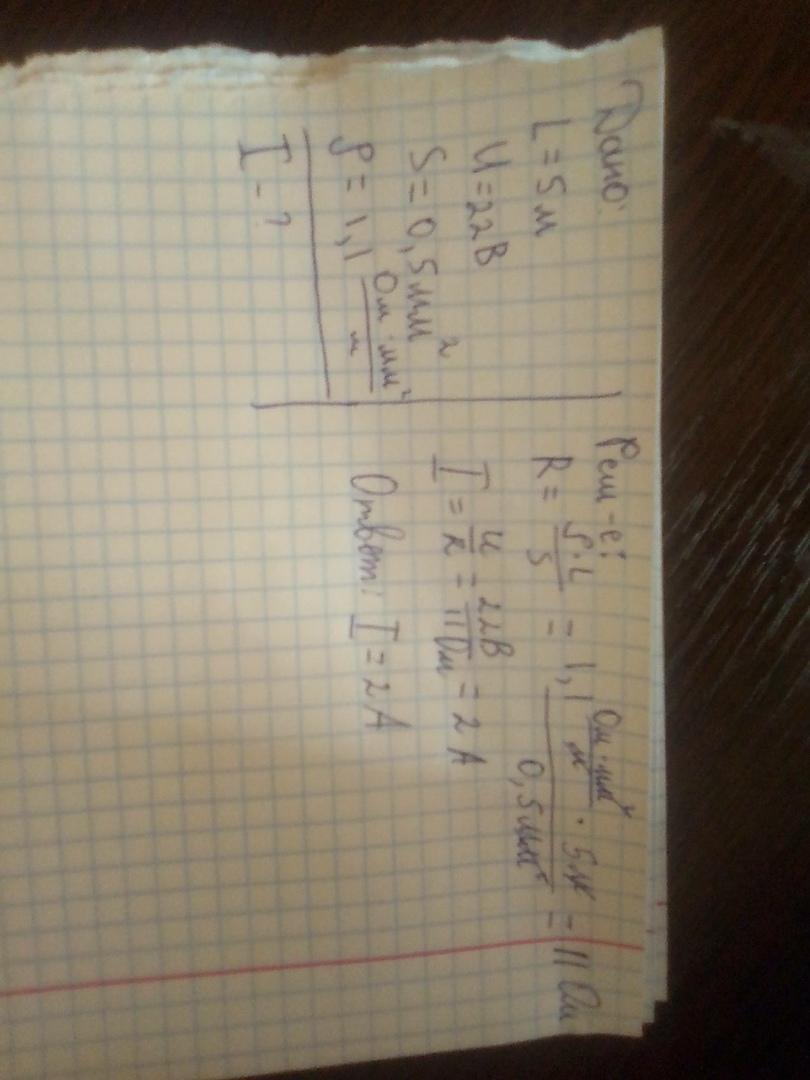 Дано:
L = 5 м
U = 22 В
S = 0,5 мм²
ρ = 1,1 Ом·мм²/м
I - ?
Реш-е:
R = ρ·L/S = 1,1 Ом·мм²/м · 5м / 0,5 мм² = 11 Ом
I = U/R = 22В/11Ом = 2 А
Ответ: I = 2 А